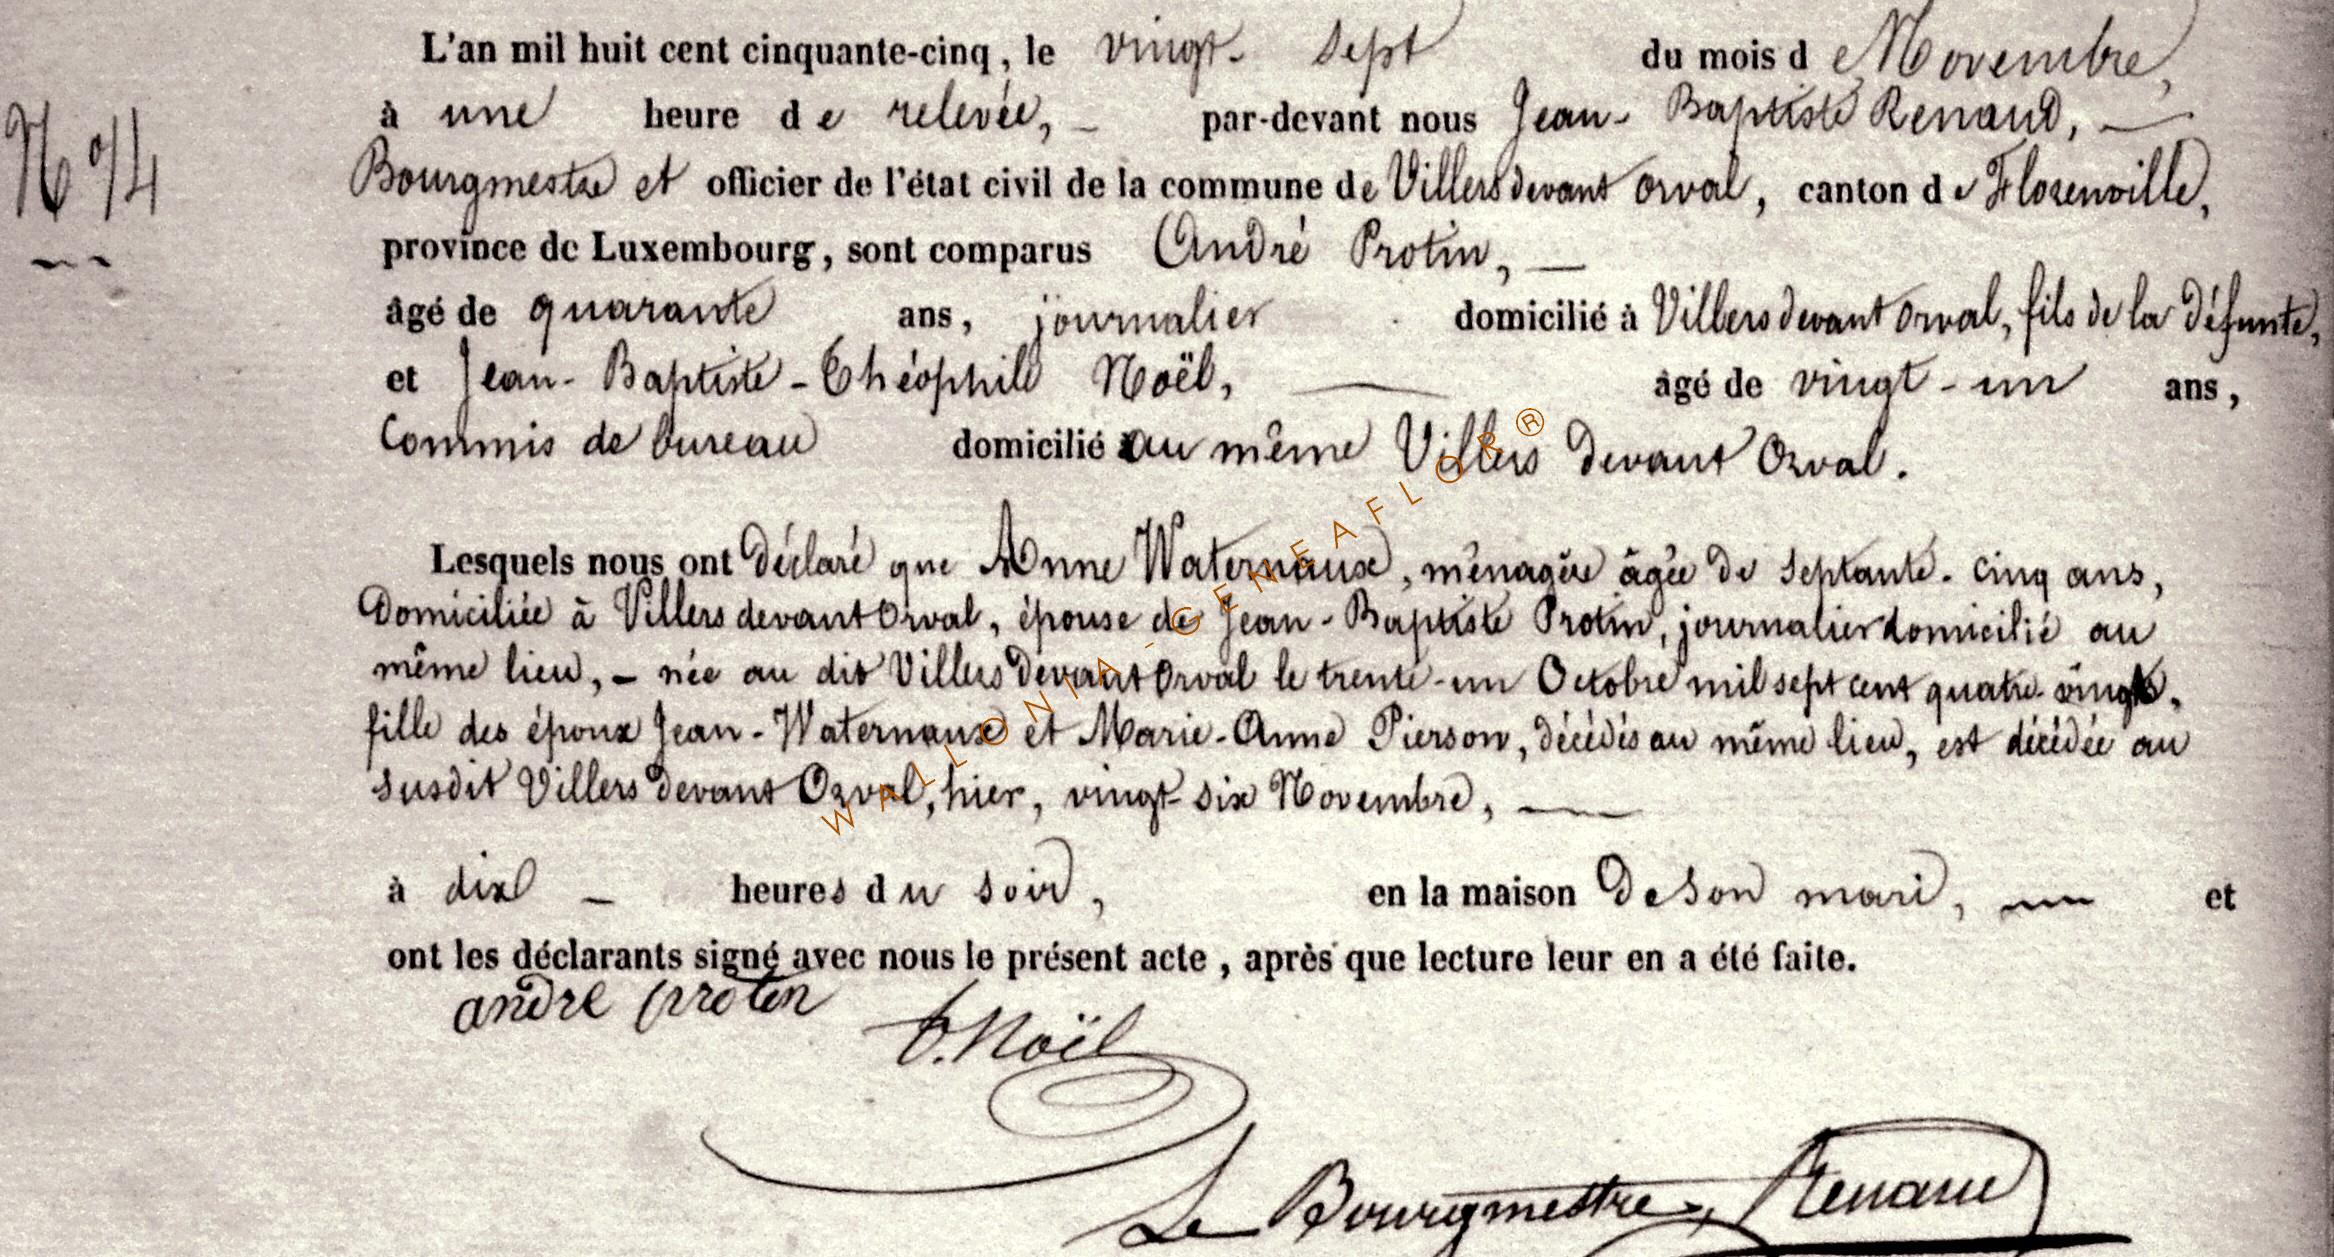 L'an mil huit cent cinquante-cinq, le vingt-sept du mois de Novembre,
à une heure de relevée, — par-devant nous Jean-Baptiste Renaud, —
N° 14
Bourgmestre et officier de l'état civil de la commune de Villers devant Orval, canton de Florenville,
province de Luxembourg, sont comparus André Protin, —
âgé de quarante ans, journalier domicilié à Villers devant Orval, fils de la défunte,
et Jean-Baptiste-Théophile Noël, — âgé de vingt-un ans,
Commis de bureau domicilié au même Villers devant Orval.
Lesquels nous ont déclaré que Anne Waternaux, ménagère âgée de septante-cinq ans,
Domiciliée à Villers devant Orval, épouse de Jean-Baptiste Protin, journalier domicilié au
même lieu, – née au dit Villers devant Orval le trente-un Octobre mil sept cent quatre-vingts,
fille des époux Jean-Waternaux et Marie-Anne Pierson, décédés au même lieu, est décédée au
susdit Villers devant Orval, hier, vingt-six Novembre, —
à dix — heures du soir, en la maison de son mari, — et
ont les déclarants signé avec nous le présent acte, après que lecture leur en a été faite.
andre protin
T. Noël
Le Bourgmestre, Renaud
WALLONIA-GENEAFLOR®